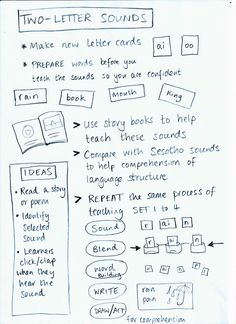 TWO-LETTER SOUNDS
* Make new letter cards
ai
oo
* PREPARE words before you
teach the sounds so you are confident
rain
book
mouth
king
> Use story books to help
teach these sounds
> Compare with Sesotho sounds
to help comprehension of
language structure
IDEAS
• Read a story
or poem
• Identify
selected
sound
• Learners
click/clap
when they
hear the
sound
> REPEAT the same process of
teaching SET 1 to 4
Sound
r ai n
Blend
r ai n
Word
Building
WRITE
rain
pain
DRAW/ACT
for comprehension